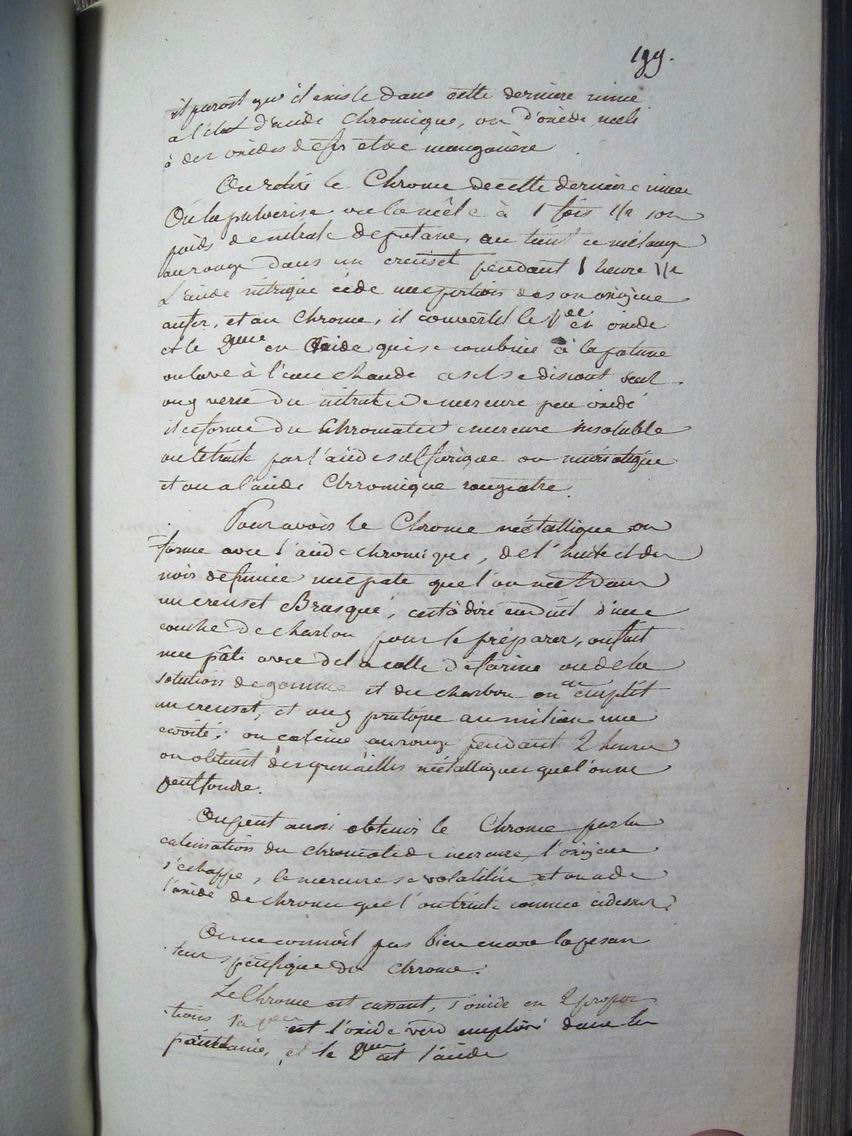 199.
il paroit qu'il existe dans cette derniere mine
a l'état d'acide chromique, ou d'oxide mêlé
à des oxides de fer et de manganèse
On retire le Chrome de cette derniere mine
On la pulverise on la mêle à 1 fois 1/2 son
poids de nitrate de potasse, on tient ce mélange
au rouge dans un creuset pendant 1 heure 1/2
L'acide nitrique cède une portion de son oxigène
au fer, et au Chrome, il convertit le 1er en oxide
et le 2eme en acide qui se combine à la potasse
on lave à l'eau chaude ce sel se dissout seul.
on y verse du nitrate de mercure peu oxidé
il se forme du chromate de mercure insoluble
on le traite par l'acide sulfurique ou muriatique
et on a l'acide Chromique rougeatre.
Pour avoir le Chrome métallique on
forme avec l'acide chromique, de l'huile et du
noir de fumée une pate que l'on met dans
un creuset Brasqué, c'est à dire enduit d'une
couche de charbon pour le préparer, on fait
une pâte avec de la colle de farine ou de la
solution de gomme et du charbon on en emplit
un creuset, et on y pratique au milieu une
cavité; on calcine au rouge pendant 2 heures
on obtient des grenailles métalliques que l'on ne
peut fondre.
On peut aussi obtenir le Chrome par la
calcination du chromate de mercure, l'oxigene
s'echappe, le mercure se volatilise et on a de
l'oxide de chrome que l'on traite comme cidessus.
On ne connoît pas bien encore la pesan
teur spécifique du Chrome.
Le Chrome est cassant, s'oxide en 2 propor
tions la 1ere est l'oxide verd emploié dans la
, et le 2eme est l'acide